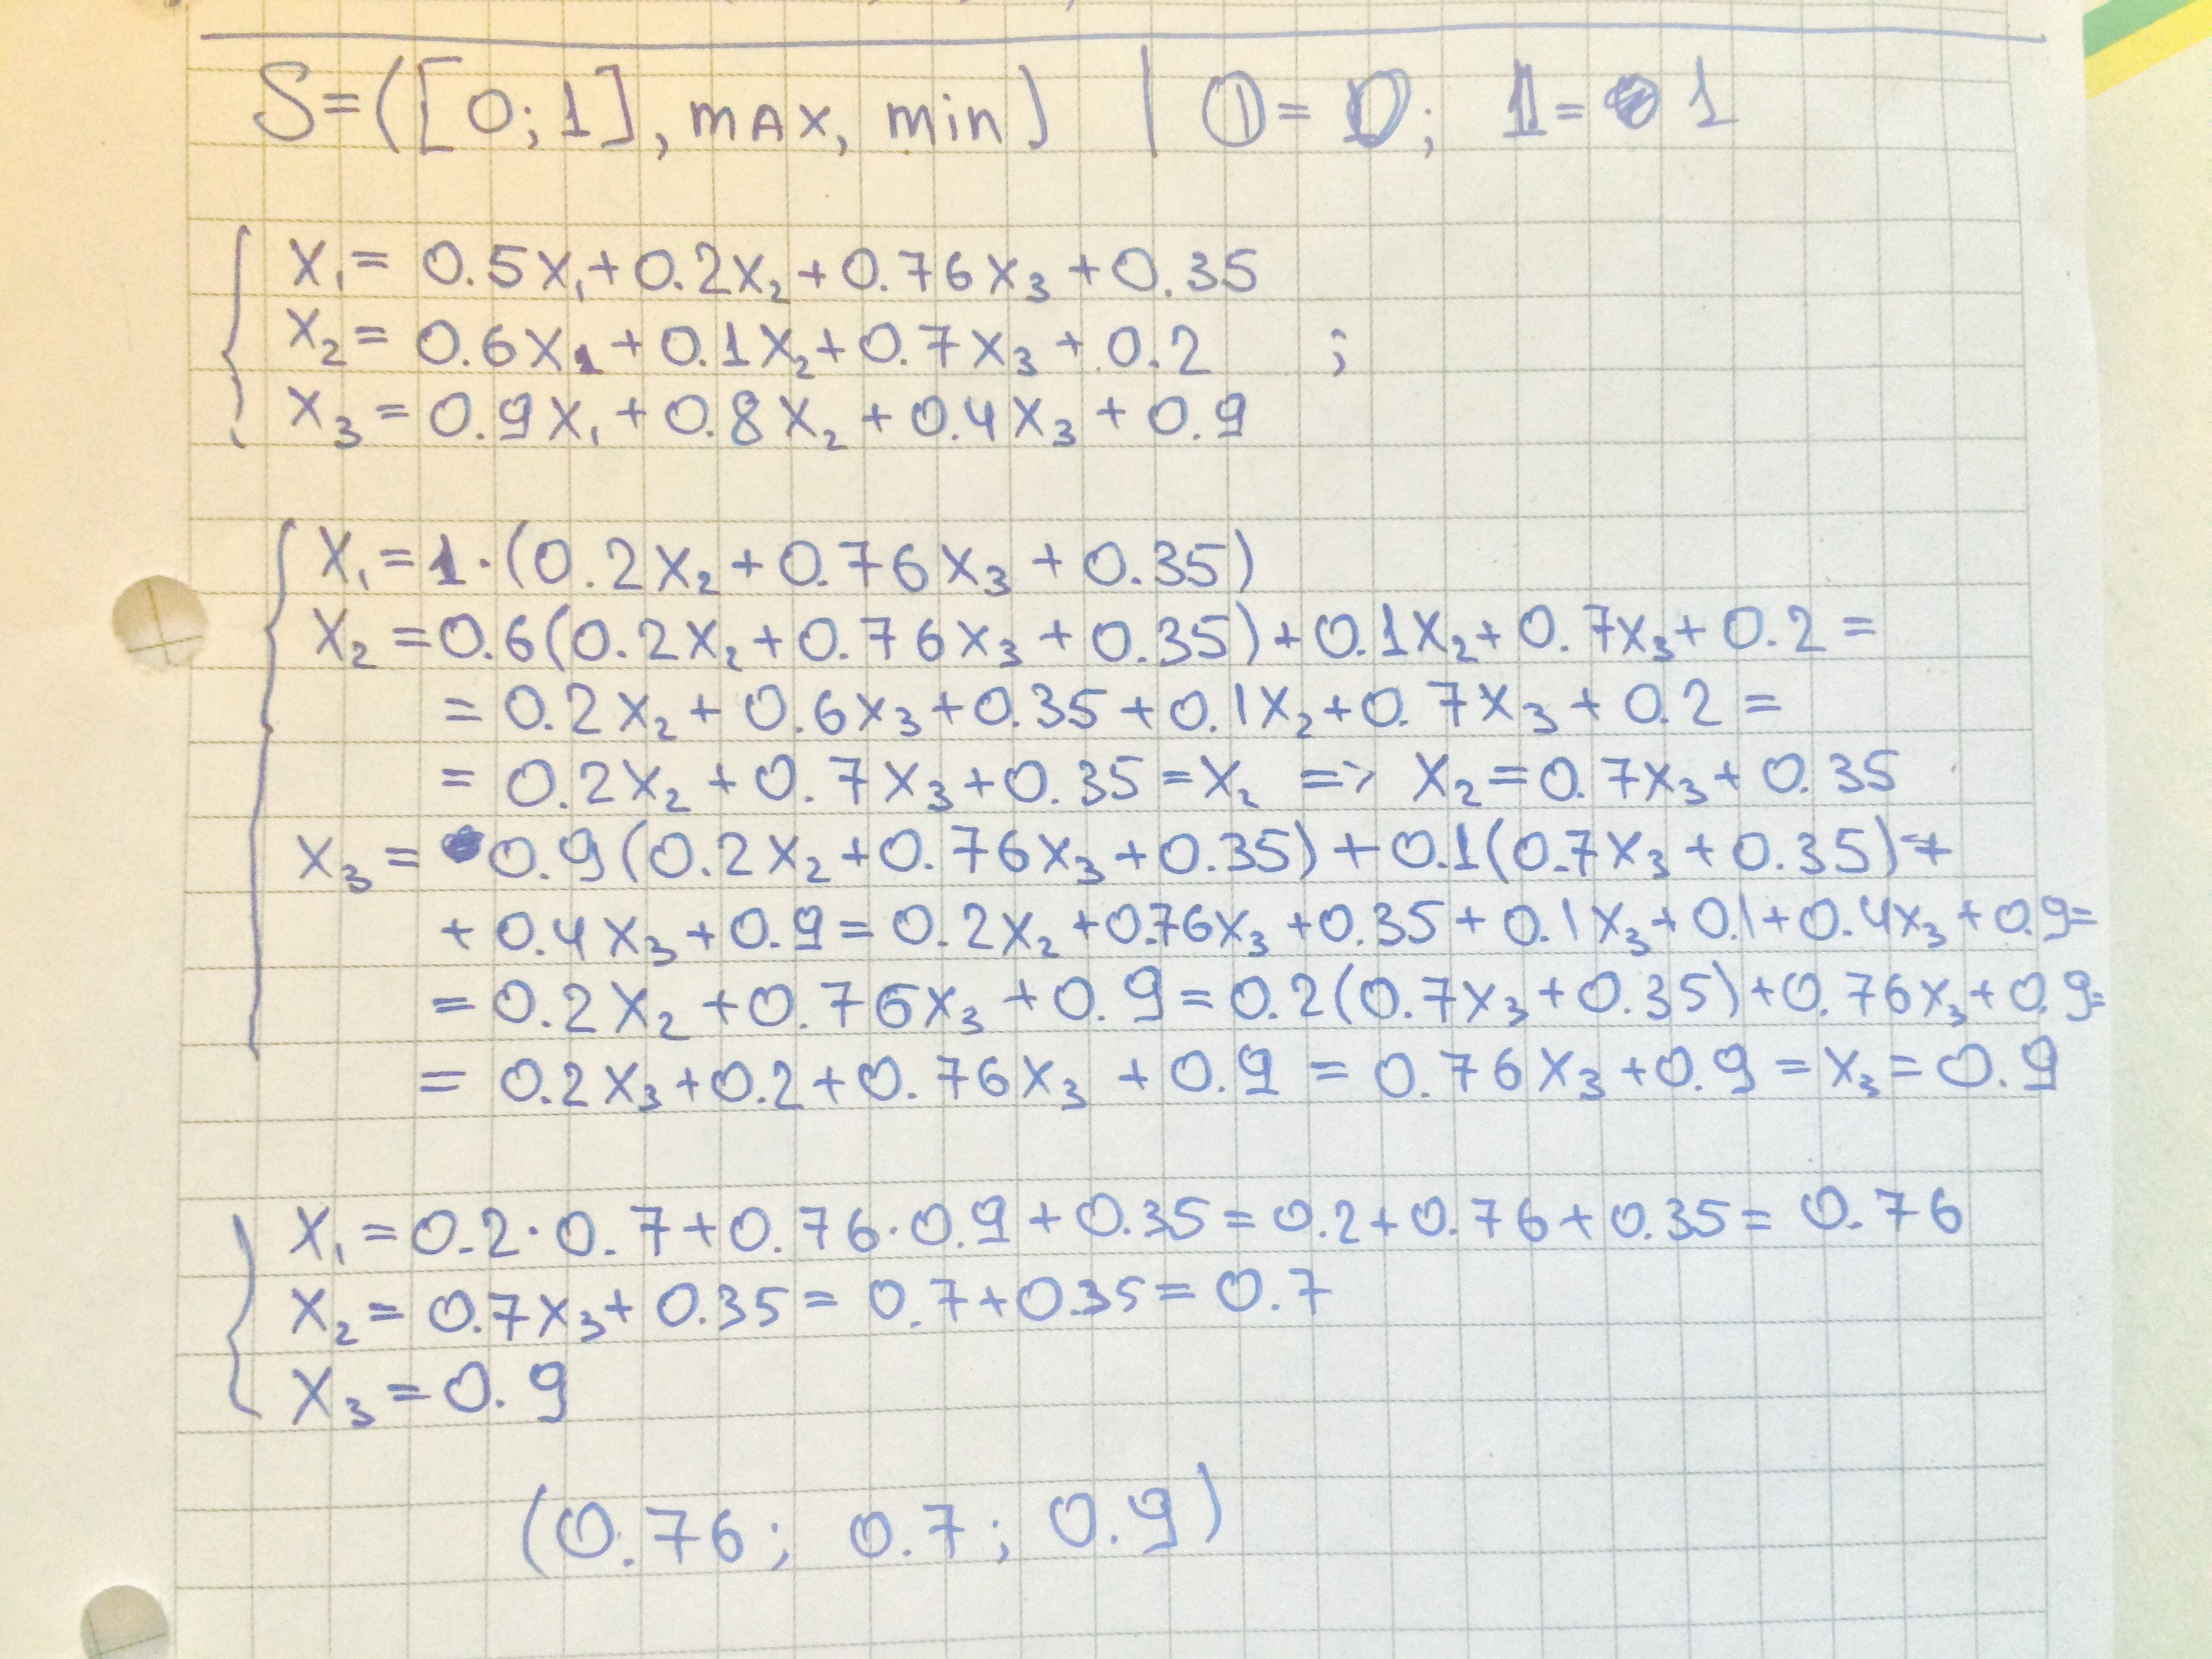 S=([0;1], max, min) | 𝟘=0; 𝟙=1
x₁= 0.5x₁+0.2x₂+0.76x₃+0.35
x₂= 0.6x₁+0.1x₂+0.7x₃+0.2 ;
x₃=0.9x₁+0.8x₂+0.4x₃+0.9
x₁=1·(0.2x₂+0.76x₃+0.35)
x₂=0.6(0.2x₂+0.76x₃+0.35)+0.1x₂+0.7x₃+0.2=
=0.2x₂+0.6x₃+0.35+0.1x₂+0.7x₃+0.2=
=0.2x₂+0.7x₃+0.35=x₂ => x₂=0.7x₃+0.35
x₃= 0.9(0.2x₂+0.76x₃+0.35)+0.1(0.7x₃+0.35)+
+0.4x₃+0.9=0.2x₂+0.76x₃+0.35+0.1x₃+0.1+0.4x₃+0.9=
=0.2x₂+0.76x₃+0.9=0.2(0.7x₃+0.35)+0.76x₃+0.9=
=0.2x₃+0.2+0.76x₃+0.9=0.76x₃+0.9=x₃=0.9
x₁=0.2·0.7+0.76·0.9+0.35=0.2+0.76+0.35=0.76
x₂=0.7x₃+0.35=0.7+0.35=0.7
x₃=0.9
(0.76; 0.7; 0.9)